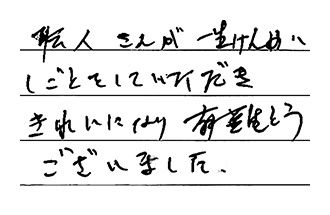 職人さんが一生けんめい
しごとをしていただき
きれいになり有難とう
ございました。